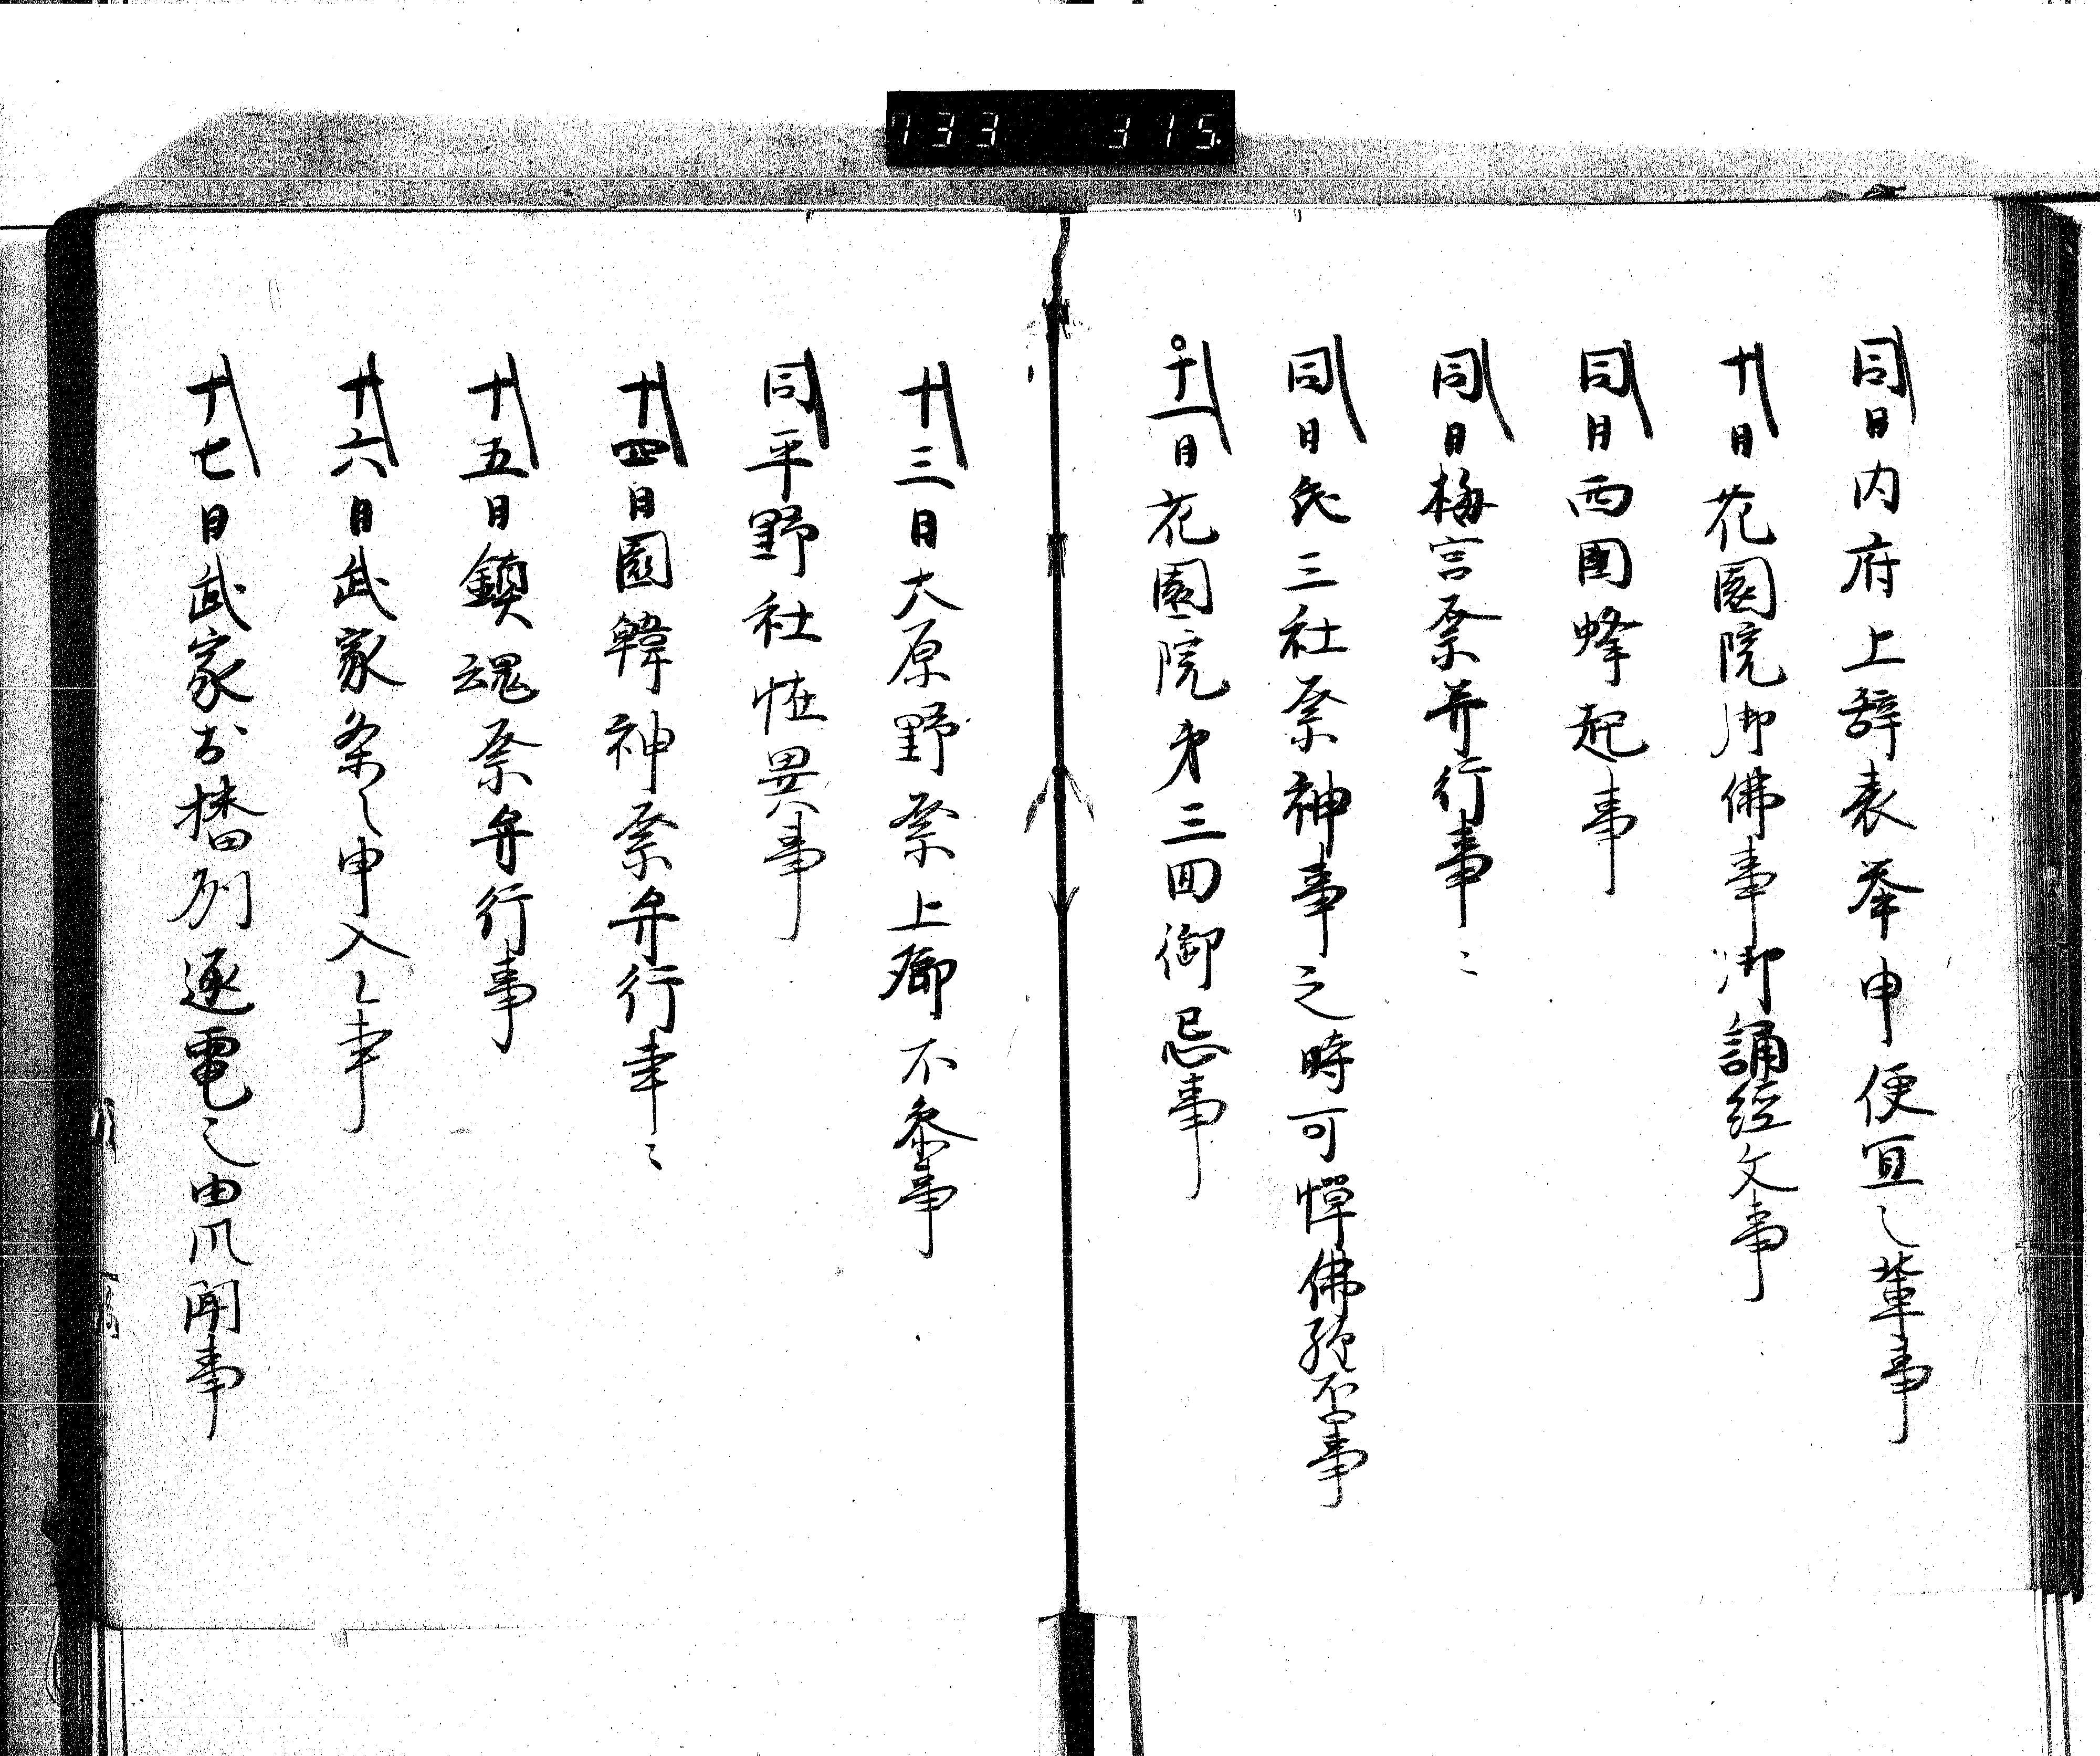 733 315
同日内府上辞表挙申便宜之輩事
十日花園院御佛事御誦経文事
同日西園蜂起事
同日梅宮祭并行事ミ
同日氏三社祭神事之時可憚佛経否事
十一日花園院第三回御忌事
十三日大原野祭上卿不参事
同平野社恠異事
十四日園韓神祭弁行事ミ
十五日鎮魂祭弁行事
十六日武家条々申入之事
十七日武家於播州逐電之由風聞事